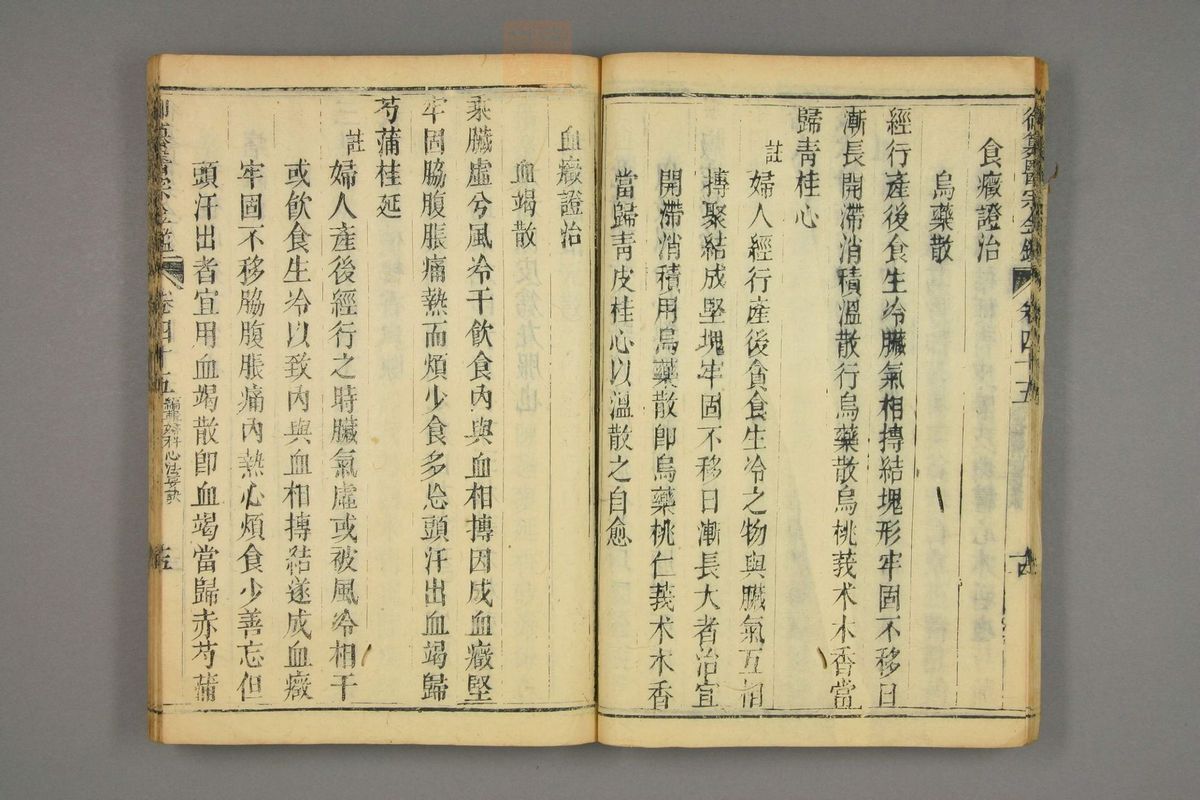 御纂醫宗金鑑 卷四十五
食癥證治
烏藥散
經行產後食生冷臟氣相搏結塊形牢固不移日
漸長開滯消積溫散行烏藥散烏桃莪术木香當
歸青桂心
註婦人經行產後貪食生冷之物與臟氣互相
搏聚結成堅塊牢固不移日漸長大者治宜
開滯消積用烏藥散卽烏藥桃仁莪术木香
當歸青皮桂心以溫散之自愈
血癥證治
血竭散
乘臟虛兮風冷干飲食內與血相搏因成血癥堅
牢固脇腹脹痛熱而煩少食多忘頭汗出血竭歸
芍蒲桂延
註婦人產後經行之時臟氣虛或被風冷相干
或飲食生冷以致內與血相搏結遂成血癥
牢固不移脇腹脹痛內熱心煩食少善忘但
頭汗出者宜用血竭散卽血竭當歸赤芍蒲
御纂醫宗金鑑 卷四十五 編輯婦科心法要訣